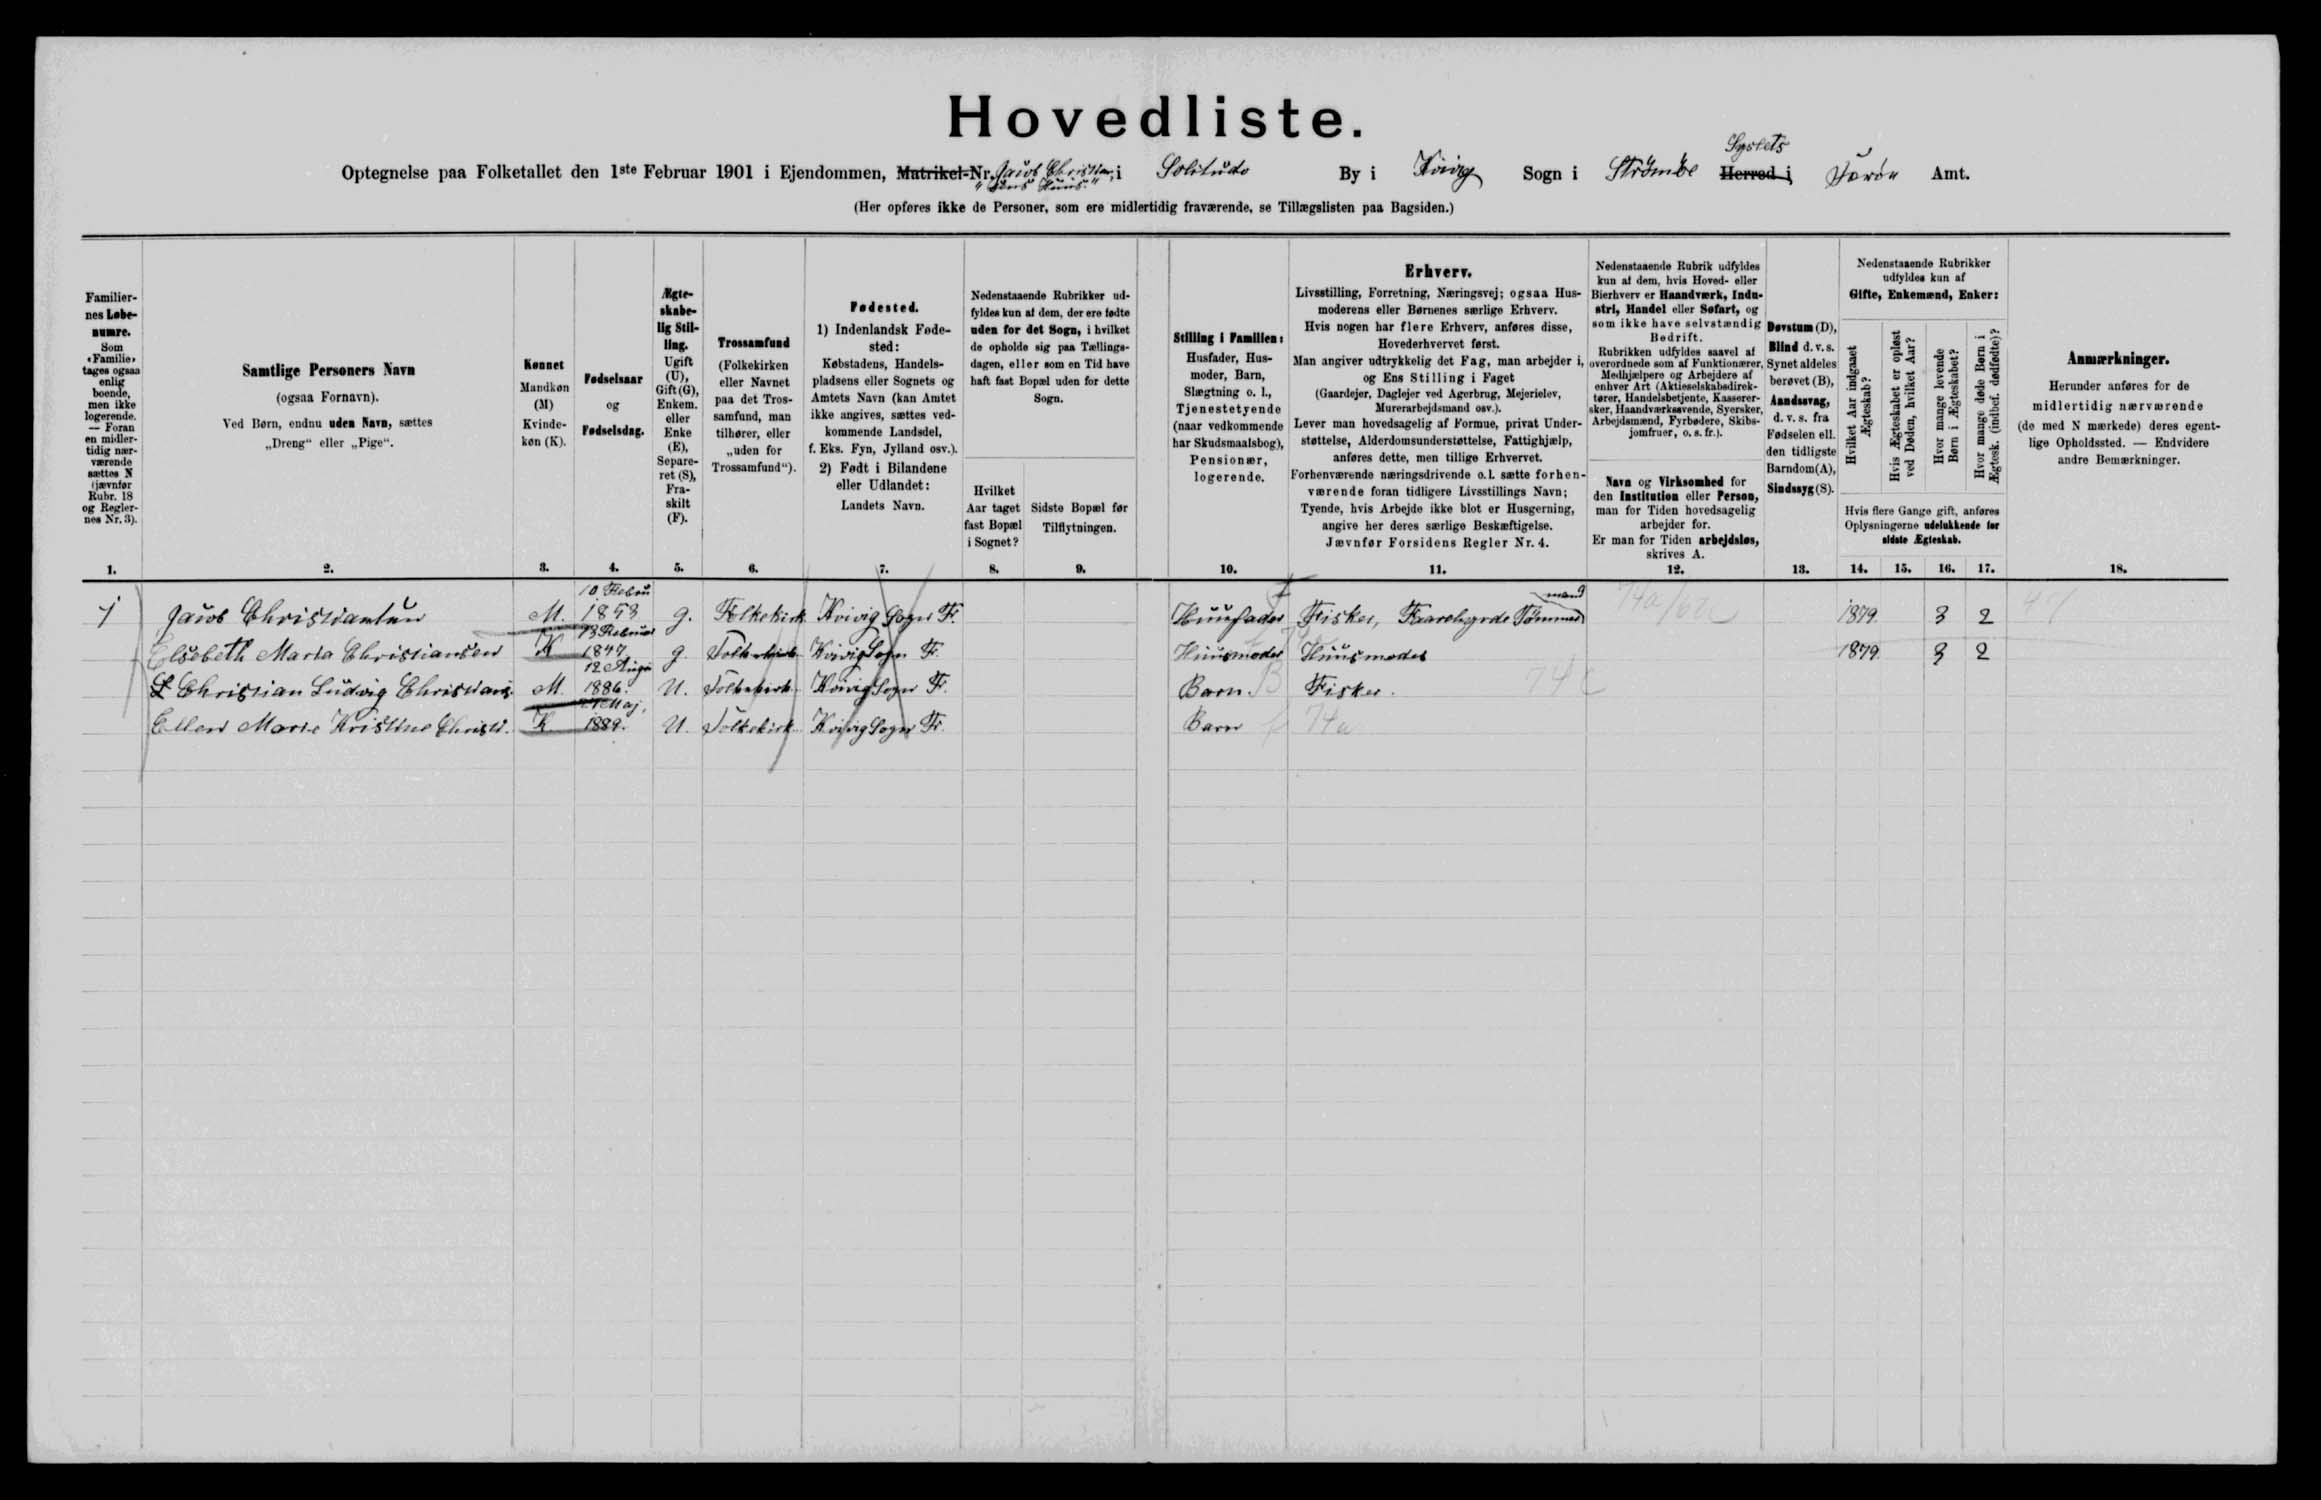 Hovedliste.
Syslets
Optegnelse paa Folketallet den 1ste Februar 1901 i Ejendommen, Matrikel-Nr. Jacob Christian- i Solitude By i Kvivig Sogn i Strömöe Herred i, Færøe Amt.
"sens Huus."
(Her opføres ikke de Personer, som ere midlertidig fraværende, se Tillægslisten paa Bagsiden.)
Familier-
nes Løbe-
numre.
Som
«Familie»
tages ogsaa
enlig
boende,
men ikke
logerende.
— Foran
en midler-
tidig nær-
værende
sættes N
(jævnfør
Rubr. 18
og Regler-
nes Nr. 3).
1.
Samtlige Personers Navn
(ogsaa Fornavn).
Ved Børn, endnu uden Navn, sættes
„Dreng“ eller „Pige“.
2.
Kønnet
Mandkøn
(M)
Kvinde-
køn (K).
3.
Fødselsaar
og
Fødselsdag.
4.
Ægte-
skabe-
lig Stil-
ling.
Ugift
(U),
Gift (G),
Enkem.
eller
Enke
(E),
Separe-
ret (S),
Fra-
skilt
(F).
5.
Trossamfund
(Folkekirken
eller Navnet
paa det Tros-
samfund, man
tilhører, eller
„uden for
Trossamfund“).
6.
Fødested.
1) Indenlandsk Føde-
sted:
Købstadens, Handels-
pladsens eller Sognets og
Amtets Navn (kan Amtet
ikke angives, sættes ved-
kommende Landsdel,
f. Eks. Fyn, Jylland osv.).
2) Født i Bilandene
eller Udlandet:
Landets Navn.
7.
Nedenstaaende Rubrikker ud-
fyldes kun af dem, der ere fødte
uden for det Sogn, i hvilket
de opholde sig paa Tællings-
dagen, eller som en Tid have
haft fast Bopæl uden for dette
Sogn.
Hvilket
Aar taget
fast Bopæl
i Sognet?
8.
Sidste Bopæl før
Tilflytningen.
9.
Stilling i Familien:
Husfader, Hus-
moder, Barn,
Slægtning o. l.,
Tjenestetyende
(naar vedkommende
har Skudsmaalsbog),
Pensionær,
logerende.
10.
Erhverv.
Livsstilling, Forretning, Næringsvej; ogsaa Hus-
moderens eller Børnenes særlige Erhverv.
Hvis nogen har flere Erhverv, anføres disse,
Hovederhvervet først.
Man angiver udtrykkelig det Fag, man arbejder i,
og Ens Stilling i Faget
(Gaardejer, Daglejer ved Agerbrug, Mejerielev,
Murerarbejdsmand osv.).
Lever man hovedsagelig af Formue, privat Under-
støttelse, Alderdomsunderstøttelse, Fattighjælp,
anføres dette, men tillige Erhvervet.
Forhenværende næringsdrivende o. l. sætte forhen-
værende foran tidligere Livsstillings Navn;
Tyende, hvis Arbejde ikke blot er Husgerning,
angive her deres særlige Beskæftigelse.
Jævnfør Forsidens Regler Nr. 4.
11.
Nedenstaaende Rubrik udfyldes
kun af dem, hvis Hoved- eller
Bierhverv er Haandværk, Indu-
stri, Handel eller Søfart, og
som ikke have selvstændig
Bedrift.
Rubrikken udfyldes saavel af
overordnede som af Funktionærer,
Medhjælpere og Arbejdere af
enhver Art (Aktieselskabsdirek-
tører, Handelsbetjente, Kasserer-
sker, Haandværkssvende, Syersker,
Arbejdsmænd, Fyrbødere, Skibs-
jomfruer, o. s. fr.).
Navn og Virksomhed for
den Institution eller Person,
man for Tiden hovedsagelig
arbejder for.
Er man for Tiden arbejdsløs,
skrives A.
12.
Døvstum (D),
Blind d. v. s.
Synet aldeles
berøvet (B),
Aandssvag,
d. v. s. fra
Fødselen ell.
den tidligste
Barndom (A),
Sindssyg (S).
13.
Nedenstaaende Rubrikker
udfyldes kun af
Gifte, Enkemænd, Enker:
Hvilket Aar indgaaet
Ægteskab?
Hvis Ægteskabet er opløst
ved Døden, hvilket Aar?
Hvor mange levende
Børn i Ægteskabet?
Hvor mange døde Børn i
Ægtesk. (indbef. dødfødte)?
Hvis flere Gange gift, anføres
Oplysningerne udelukkende for
sidste Ægteskab.
14. 15. 16. 17.
Anmærkninger.
Herunder anføres for de
midlertidig nærværende
(de med N mærkede) deres egent-
lige Opholdssted. — Endvidere
andre Bemærkninger.
18.
10 Febru mand
1 Jacob Christiansen M. 1853 g. Folkekirk. Kvivig Sogn F. Huusfader Fisker, Faarehyrde Tömmer 74a 1879. 3 2 47
13 Februar
Elsebeth Maria Christiansen K 1847 g. Folkekirk. Kvivig Sogn F. Huusmoder Huusmoder 1879. 3 2
12 Augu
Christian Ludvig Christians. M. 1886. U. Folkekirk. Kvivig Sogn F. Barn. B Fisker. 74c
Maj,
Ellen Marie Kristine Christi. K 1889. U. Folkekirk. Kvivig Sogn F. Barn f 74a